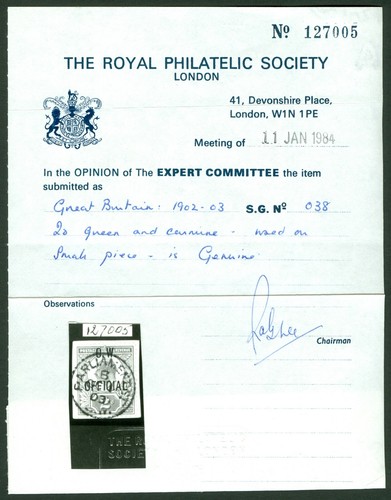 Nº 127005
THE ROYAL PHILATELIC SOCIETY
LONDON
41, Devonshire Place,
London, W1N 1PE
Meeting of 11 JAN 1984
In the OPINION of The EXPERT COMMITTEE the item
submitted as
Great Britain: 1902-03 S.G. Nº 038
2d green and carmine - used on
small piece - is Genuine
Observations
Chairman
127005
O.W.
OFFICIAL
PARLIAMENT
THE R
SOCIE